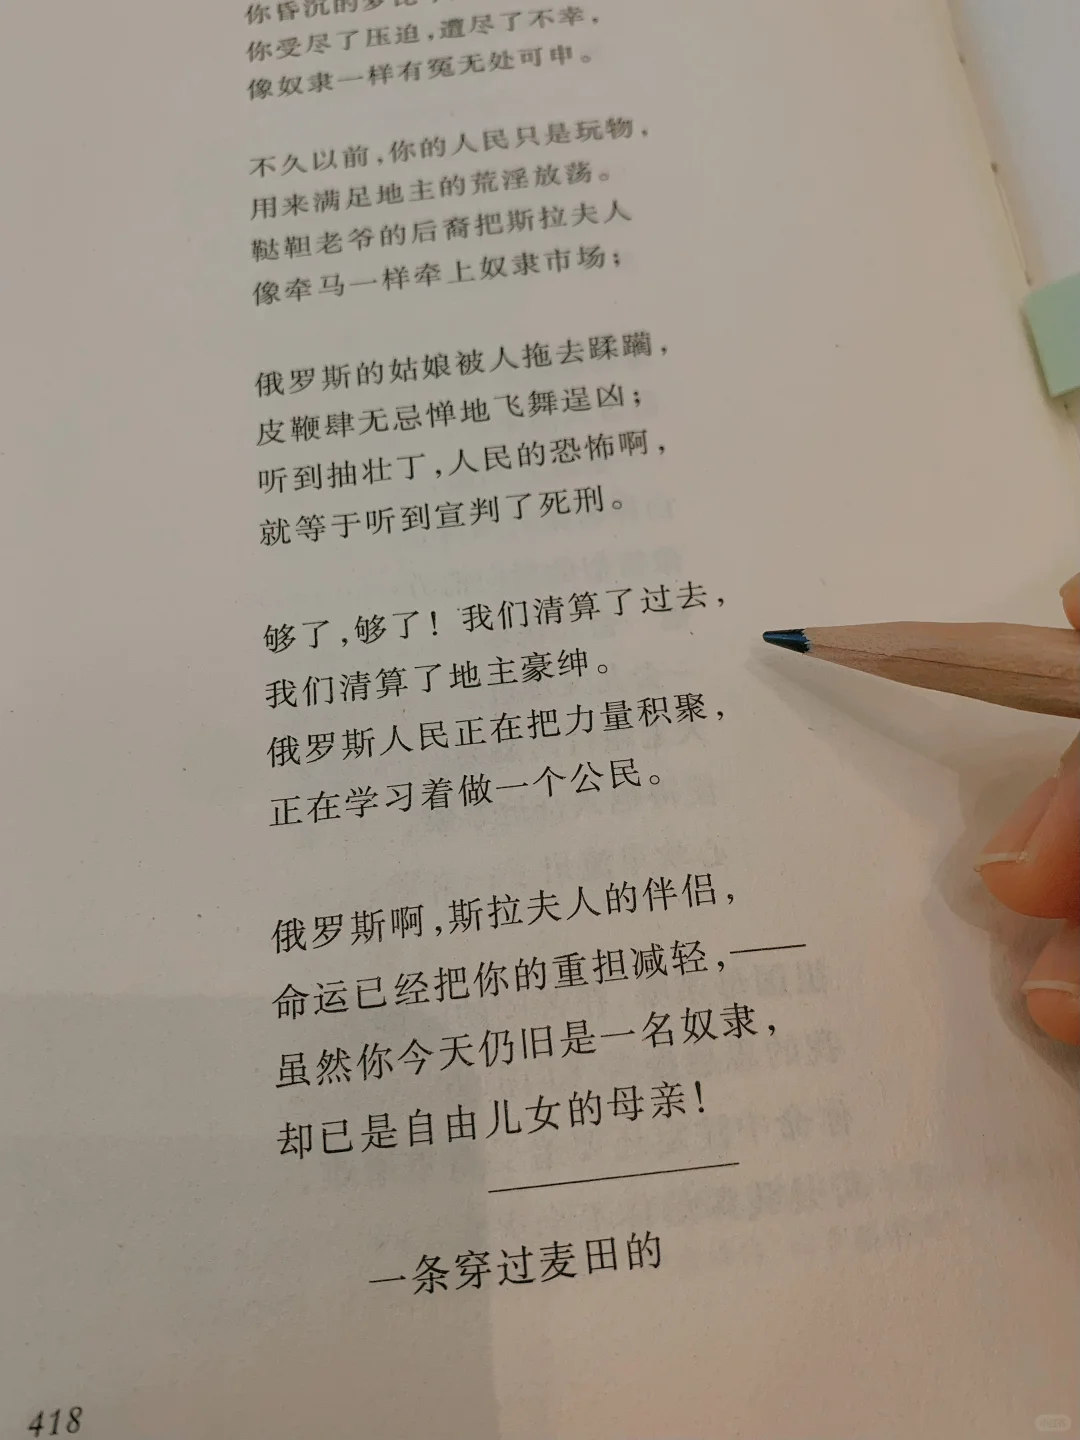 你昏沉的梦
你受尽了压迫，遭尽了不幸，
像奴隶一样有冤无处可申。
不久以前，你的人民只是玩物，
用来满足地主的荒淫放荡。
鞑靼老爷的后裔把斯拉夫人
像牵马一样牵上奴隶市场；
俄罗斯的姑娘被人拖去蹂躏，
皮鞭肆无忌惮地飞舞逞凶；
听到抽壮丁，人民的恐怖啊，
就等于听到宣判了死刑。
够了，够了！我们清算了过去，
我们清算了地主豪绅。
俄罗斯人民正在把力量积聚，
正在学习着做一个公民。
俄罗斯啊，斯拉夫人的伴侣，
命运已经把你的重担减轻，——
虽然你今天仍旧是一名奴隶，
却已是自由儿女的母亲！
一条穿过麦田的
418